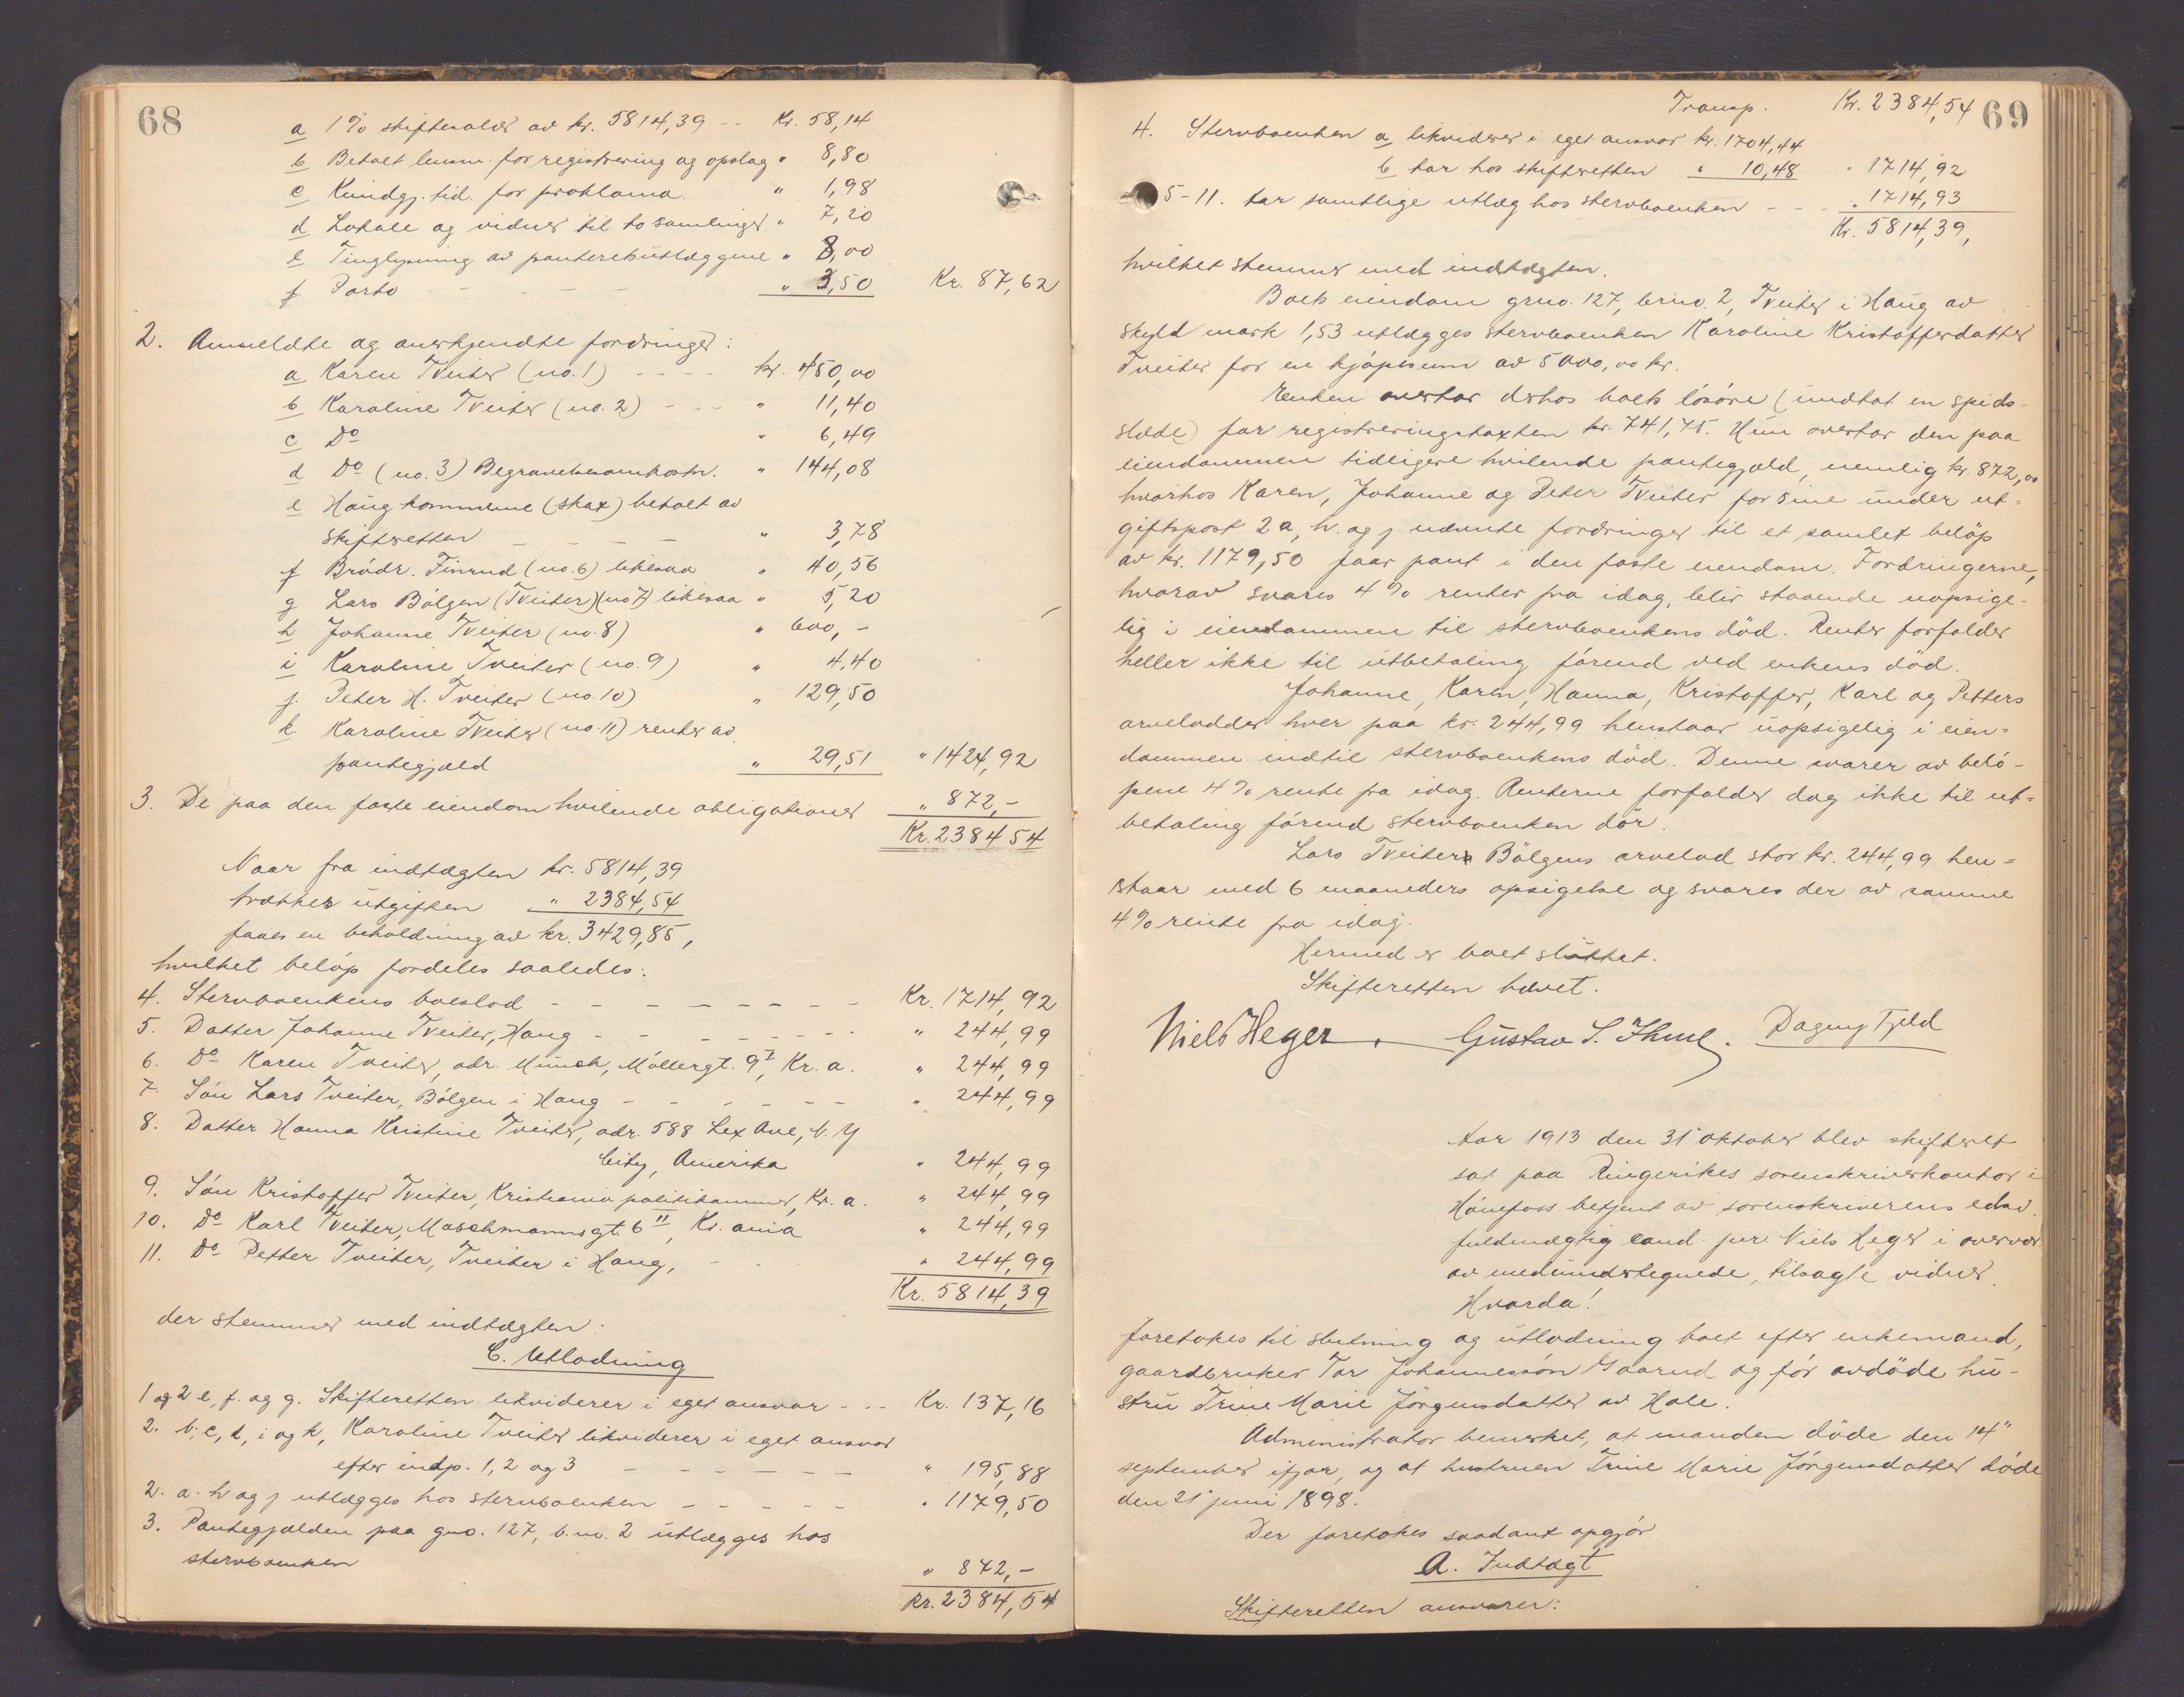 68
a 1% skifteralds av kr. 5814,39 -- Kr. 58,14
b Betalt lensm. for registrering og opslag " 8,80
c Kundgj. tid. for proklama " 1,98
d Lokale og vidner til to samlinger " 7,20
e Tinglysning av panteretsutlæggene " 8,00
f Porto - - - - - " 3,50 Kr. 87,62
2. Anmeldte og anerkjendte fordringer:
a Karen Tveiter (no. 1) - - - - kr. 450,00
b Karoline Tveiter (no. 2) - - - " 11,40
c Do " 6,49
d Do (no. 3) Begravelsesomkostn. " 144,08
e Haug kommune (skat) betalt av
skifteretten - - - - - " 3,78
f Brødr. Finrud (no. 6) likesaa " 40,56
g Lars Bölgen (Tveiter) (no 7) likesaa " 5,20
h Johanne Tveiter (no. 8) " 600,-
i Karoline Tveiter (no. 9) " 4,40
j. Peter H. Tveiter (no. 10) " 129,50
k. Karoline Tveiter (no. 11) renter av
pantegjæld " 29,51 " 1424,92
3. De paa den faste eiendom hvilende obligationer " 872,-
Kr. 2384 54
Naar fra indtægten kr. 5814,39
trækkes utgiften " 2384,54
faaes en beholdning av kr. 3429,85,
hvilket beløp fordeles saaledes:
4. Stervboenkens boeslod - - - - - - - Kr. 1714,92
5. Datter Johanne Tveiter, Haug - - - - - - " 244,99
6. Do Karen Tveiter, adr. Munch, Möllergt. 9I, Kr. a. " 244,99
7. Sön Lars Tveiter, Bölgen i Haug - - - - - - " 244,99
8. Datter Hanna Kristine Tveiter, adr. 588 Lex Ave, N. Y
City, Amerika " 244,99
9. Sön Kristoffer Tveiter, Kristiania politikammer, Kr. a. " 244,99
10. Do Karl Tveiter, Maschmannsgt. 6 II, Kr. ania " 244,99
11. Do Petter Tveiter, Tveiter i Haug, - - " 244,99
Kr. 5814,39
der stemmer med indtægten:
C. Utlodning
1 og 2 e, f. og g. Skifteretten likviderer i eget ansvar - -- Kr. 137,16
2. b, c, d, i og k, Karoline Tveiter likviderer i eget ansvar
efter indp. 1, 2 og 3 - - - - - - " 195,88
2. a. h og j utlægges hos stervboenken - - - - - " 1179,50
3. Pantegjælden paa gno. 127, b. no. 2 utlægges hos
stervboenken " 872,-
Kr. 2384,54
69
Transp. Kr. 2384,54
4. Stervboenken a likviderer i eget ansvar kr. 1704,44
b tar hos skifteretten " 10,48 " 1714,92
5-11. tar samtlige utlæg hos stervboenken - - - " 1714,93
Kr. 5814,39,
hvilket stemmer med indtægten.
Boets eiendom grno. 127, brno. 2, Tveiter i Haug av
skyld mark 1,53 utlægges stervboenken Karoline Kristoffersdatter
Tveiter for en kjøpesum av 5000,00 kr.
Enken overtar derhos boets lösöre (undtat en spids-
slæde) for registreringstaxten kr. 741,75. Hun overtar den paa
eiendommen tidligere hvilende pantegjæld, nemlig kr. 872,00
hvorhos Karen, Johanne og Peter Tveiter for sine under ut=
giftspost 2 a, h. og j nævnte fordringer til et samlet belöp
av kr. 1179,50 faar pant i den faste eiendom. Fordringerne,
hvorav svares 4% renter fra idag, blir staaende uopsige-
lig i eiendommen til stervboenkens död. Renter forfalder
heller ikke til utbetaling förend ved enkens död.
Johanne, Karen, Hanna, Kristoffer, Karl og Petters
arvelodder hver paa kr. 244,99 henstaar uopsigelig i eien=
dommen indtil stervboenkens död. Denne svarer av belö-
pene 4% rente fra idag. Renterne forfalder dog ikke til ut=
betaling förend stervboenken dör.
Lars Tveiter Bölgens arvelod stor kr. 244,99 hen=
staar med 6 maaneders opsigelse og svares der av samme
4% rente fra idag.
Hermed er boet sluttet.
Skifteretten hævet.
Niels Heger. Gustav S. Ihme. Dagny Fjeld
Aar 1913 den 31' oktober blev skifteret
sat paa Ringerikes sorenskriverkontor i
Hönefoss betjent av sorenskriverens edsv.
fuldmægtig cand. jur. Niels Heger i overvær
av medundertegnede, tilsagte vidner.
Hvorda!
foretokes til slutning og utlodning boet efter enkemand,
gaardbruker Tor Johannessön Gaarud og för avdöde hu-
stru Trine Marie Jörgensdatter av Hole.
Administrator bemerket, at manden döde den 14"
september ifjor, og at hustruen Trine Marie Jörgensdatter döde
den 21' juni 1898.
Der foretokes saadant opgjör
A. Indtægt
Skifteretten ansvarer: